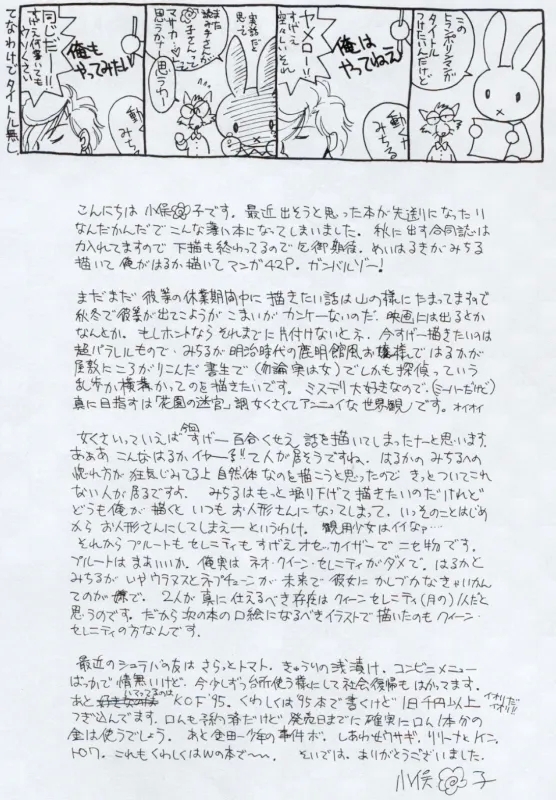 この
トランポリンマンガ
タイトル
つけたいんだけど
俺は
やってねえ
ヤメロー!!
すげえ
空々しいそれ
動く
みちる
実話だと
思って
また
読み手さんが
子さんって
マサカ
思うわー
思うかナー
俺も
やってみたい
動く
みちる
同じだー!!
すげえ何書いても
ウソくさい
てなわけでタイトル無し
こんにちは 小俣子です。最近出そうと思った本が先送りになったり
なんだかんだで こんな薄い本になってしまいました。秋に出す合同誌は
力入れてますので 下描も終わってるので 乞御期待。めいはるきがみちる
描いて 俺がはるか描いて マンガ42P。ガンバルゾー!
まだまだ 彼等の休業期間中に 描きたい話は山の様に たまってますので
秋冬で彼等が出てこようが こまいが カンケーないのだ。映画には出るとか
なんとか。もしホントなら それまでに片付けないとネ。今すげー描きたいのは
超パラレルもので、みちるが明治時代の鹿鳴館風お嬢様で はるかが
屋敷にころがりこんだ書生で(勿論実は女)でしかも探偵っていう
乱歩か横溝かってのを描きたいです。ミステリ大好きなので。(ミーハーだけど)
真に目指すは「花園の迷宮」調女くさくてアンニュイな世界観 です。オイオイ
女くさいっていえば 今回 すげー百合くせえ 話を描いてしまったナーと思います。
あああ こんなはるか イヤー!! って人が居そうですね。はるかのみちるへの
惚れ方が 狂気じみてる上 自然体なのを描こうと思ったので きっとついてこれ
ない人が居るですよ。 みちるはもっと掘り下げて描きたいのだけれど
どうも俺が描くと いつも お人形さんになってしまって。いっそのことはじめ
から お人形さんにしてしまえーというわけ。観用少女はイイなァ…
それから プルートも セレニティも すげえ オセッカイザーで ニセ物です。
プルートは まあいいか。俺実は ネオ・クイーン・セレニティがダメで。はるかと
みちるが しや ウラヌスとネプチューンが 未来で彼女に かしづかなきゃいかん
てのが 嫌で。 2人が真に仕えるべき存在は クイーンセレニティ(月の)1人だと
思うのです。だから次の本の口絵になるべきイラストで 描いたのもクイーン・
セレニティの方なんです。
最近のシュラバの友は さらっとトマト、きゅうりの浅漬け、コンビニメニュー
ばっかで 情無いけど、今少しずつ台所使う様にして 社会復帰も はかってます。
あと ハマってるのは KOF'95。くわしくは'95本で書くけど 1日千円以上
イオリだ
イオリ!!
つぎ込んでます。ロムも予約済だけど 発売日までに確実にロム1本分の
金は使うでしょう。あと 金田一少年の事件ボ、しあわせウサギ、リリーナとヒイロ、
トロワ。これも くわしくはWの本で〜〜。 そいでは。ありがとうございました。
小俣子